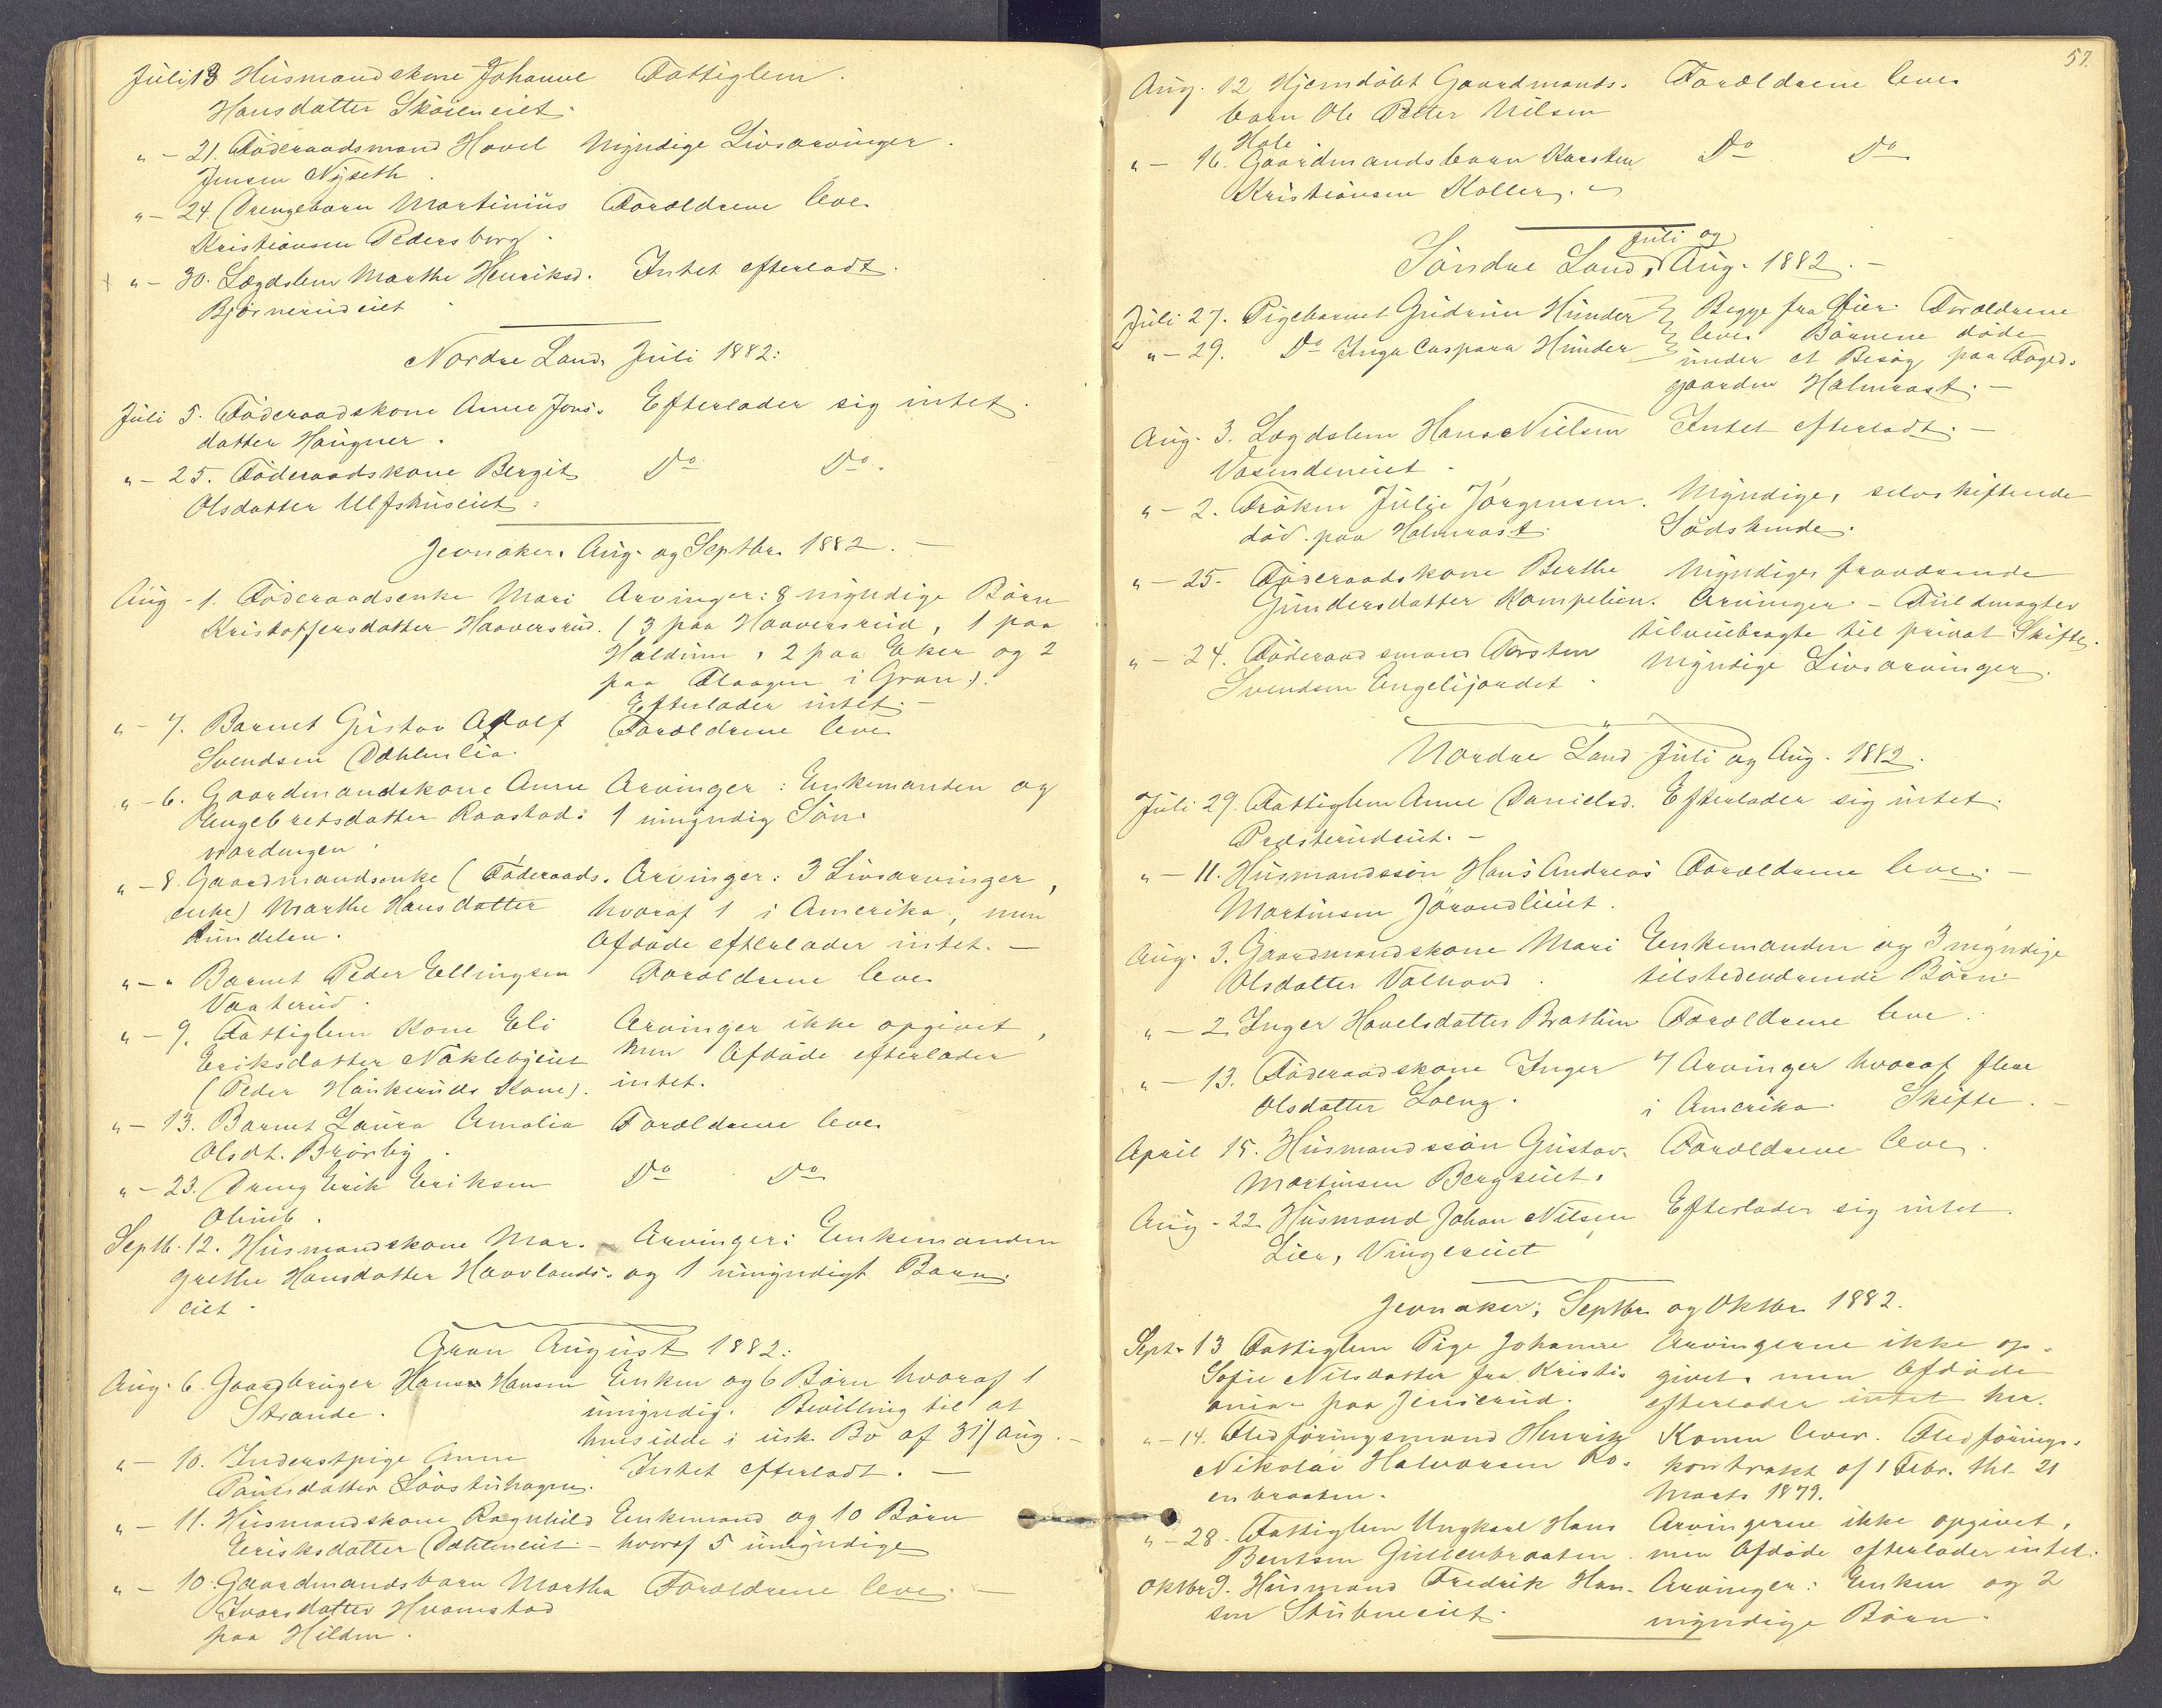 Juli 13 Husmandskone Johanne Fattiglem.
Hansdatter Skøieneiet.
" - 21. Føderaadsmand Hovel Myndige Livsarvinger.
Jensen Nyseth.
" - 24. Drengebarn Martinius Forældrene leve.
Kristiansen Pedersborg.
" - 30. Lægdslem Marthe Henriksd. Intet efterladt.
Bjørnerudeiet
Nordre Land, Juli 1882:
Juli 5. Føderaadskone Anne Jons- Efterlader sig intet.
datter Haugner.
" - 25. Føderaadskone Bergit Do Do.
Olsdatter Ulfshuseiet.
Jevnaker, Aug. og Septbr. 1882. -
Aug - 1. Føderaadsenke Mari Arvinger: 8 myndige Børn
Kristoffersdatter Haaversrud. (3 paa Haaversrud, 1 paa
Haldum, 2 paa Eker og 2
paa Flaagen i Gran).
Efterlader intet. -
" - 7. Barnet Gustav Adolf Forældrene leve
Svendsen Dæhlenlia.
" - 6. Gaardmandskone Anne Arvinger: Enkemanden og
Engebretsdatter Raastad- 1 umyndig Søn.
mardengen.
" - 8. Gaardmandsenke (Føderaads- Arvinger: 3 Livsarvinger,
enke) Marthe Hansdatter hvoraf 1 i Amerika, men
Rundelen. Afdøde efterlader intet. -
" - " Barnet Peder Ellingsen Forældrene leve.
Vaaterud.
" - 9. Fattiglem Kone Eli Arvinger ikke opgivet,
Eriksdatter Nøklebyeiet men Afdøde efterlader
(Peder Haukeruds Kone). intet.
" - 13. Barnet Laura Amalia Forældrene leve.
Olsdt. Brørby.
" - 23. Dreng Erik Eriksen Do Do
Olimb.
Septb. 12. Husmandskone Mar- Arvinger: Enkemanden
grethe Hansdatter Haavlands- og 1 umyndigt Barn.
eiet.
Gran August 1882:
Aug. 6. Gaardbruger Hans Hansen Enken og 6 Børn hvoraf 1
Strande. umyndig. Bevilling til at
hensidde i usk. Bo af 31/ Aug. -
" - 10. Inderstpige Anne Intet efterladt. -
Paulsdatter Løvstuhagen.
" - 11. Husmandskone Ragnhild Enkemand og 10 Børn
Eriksdatter Dæhleneiet. - hvoraf 5 umyndige
" - 10. Gaardmandsbarn Martha Forældrene leve. -
Ivarsdatter Hvamstad
paa Hilden.
57.
Aug. 12 Hjemdøbt Gaardmands- Forældrene leve.
barn Ole Petter Nilsen
Hole
" - 16. Gaardmandsbarn Karsten Do Do
Kristiansen Koller. -
Juli og
Søndre Land, Aug. 1882. -
Juli 27. Pigebarnet Gudrun Hunder Begge fra Lier. Forældrene
" - 29. Do Inga Caspara Hunder leve. Børnene døde
under et Besøg paa Foged-
gaarden Halmrast. -
Aug. 3. Lægdslem Hans Nielsen Intet efterladt. -
Vasendeneiet.
" - 2. Frøken Julie Jørgensen. Myndige, selvskiftende
død paa Halmrast. Sødskende.
" - 25. Føderaadskone Berthe Myndige, fraværende
Gundersdatter Kampelien. Arvinger. - Fuldmagter
tilveiebragte til privat Skifte.
" - 24. Føderaadsmand Torsten Myndige Livsarvinger.
Svendsen Engelijordet.
Nordre Land Juli og Aug. 1882.
Juli 29. Fattiglem Anne Danielsd. Efterlader sig intet.
Præsterudeiet. -
" - 11. Husmandssøn Hans Andreas Forældrene leve. -
Martinsen Jørandlieiet.
Aug. 3. Gaardmandskone Mari Enkemanden og 3 myndige
Olsdatter Valhovd. tilstedeværende Børn.
" - 2 Inger Hovelsdatter Brattlien Forældrene leve.
" - 13. Føderaadskone Inger 7 Arvinger hvoraf flere
Olsdatter Loeng. i Amerika. Skifte. -
April 15. Husmandssøn Gustav Forældrene leve.
Martinsen Bergseiet.
Aug - 22. Husmand Johan Nilsen Efterlader sig intet.
Lier, Vingereiet
Jevnaker, Septbr. og Oktbr. 1882.
Sept. 13 Fattiglem Pige Johanne Arvingerne ikke op-
Sofie Nilsdatter fra Kristi- givet, men Afdøde
ania paa Jenserud. efterlader intet her.
" - 14. Fledføringsmand Henrik Konen lever. Fledførings-
Nikolai Halvorsen Ro- kontrakt af 1 Febr. thl. 21
enbraaten. Marts 1879.
" - 28. Fattiglem Ungkarl Hans Arvingerne ikke opgivet,
Bentsen Gullenbraaten. men Afdøde efterlader intet.
Oktbr. 9. Husmand Fredrik Han- Arvinger: Enken og 2
sen Stubneiet. myndige Børn.